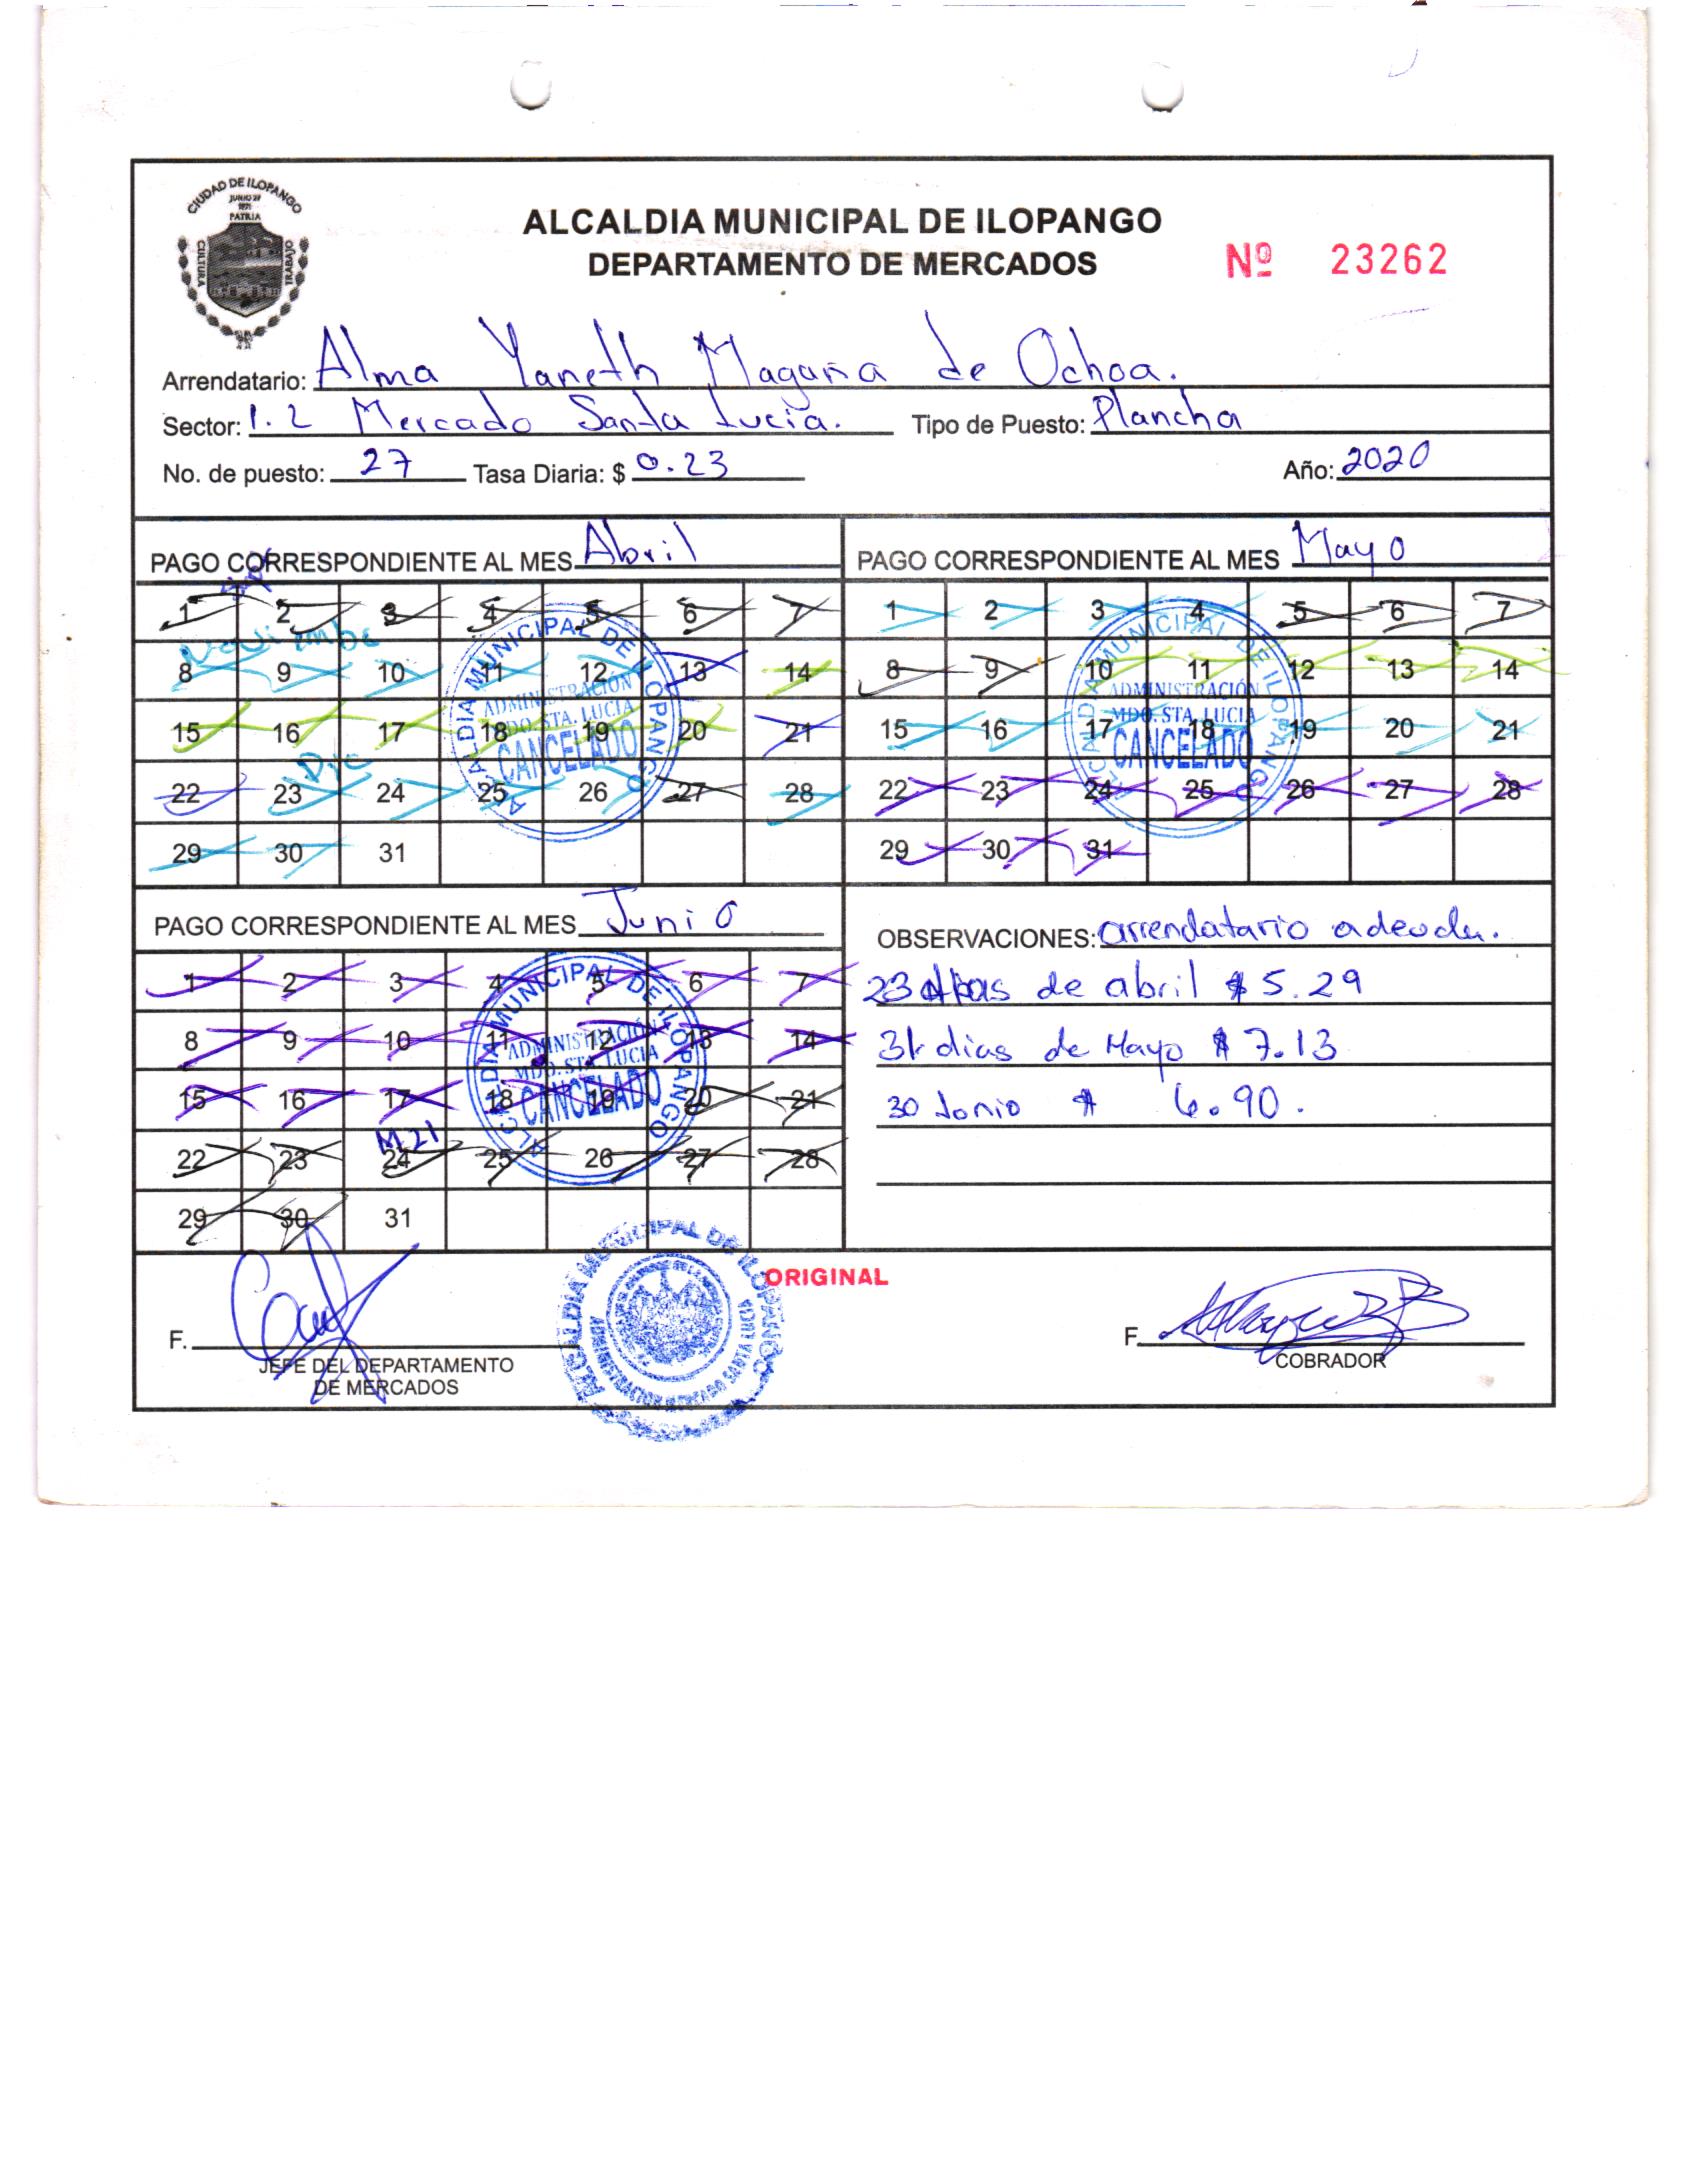 CIUDAD DE ILOPANGO
JUNIO 29
1971
PATRIA
CULTURA
TRABAJO
ALCALDIA MUNICIPAL DE ILOPANGO
DEPARTAMENTO DE MERCADOS
Nº 23262
Arrendatario: Alma Yaneth Magaña de Ochoa.
Sector: 1.2 Mercado Santa Lucia. Tipo de Puesto: Plancha
No. de puesto: 27 Tasa Diaria: $ 0.23 Año: 2020
PAGO CORRESPONDIENTE AL MES Abril
1 2 3 4 5 6 7
8 9 10 11 12 13 14
15 16 17 18 19 20 21
Dic
22 23 24 25 26 27 28
29 30 31
ALCALDIA MUNICIPAL DE ILOPANGO
ADMINISTRACIÓN
MDO. STA. LUCIA
CANCELADO
PAGO CORRESPONDIENTE AL MES Mayo
1 2 3 4 5 6 7
8 9 10 11 12 13 14
15 16 17 18 19 20 21
22 23 24 25 26 27 28
29 30 31
ALCALDIA MUNICIPAL DE ILOPANGO
ADMINISTRACIÓN
MDO. STA. LUCIA
CANCELADO
PAGO CORRESPONDIENTE AL MES Junio
1 2 3 4 5 6 7
8 9 10 11 12 13 14
15 16 17 18 19 20 21
M.21
22 23 24 25 26 27 28
29 30 31
ALCALDIA MUNICIPAL DE ILOPANGO
ADMINISTRACIÓN
MDO. STA. LUCIA
CANCELADO
OBSERVACIONES: arrendatario adeuda.
23 dias de abril $ 5.29
31 dias de Mayo $ 7.13
30 Junio $ 6.90.
ORIGINAL
F.
JEFE DEL DEPARTAMENTO
DE MERCADOS
ALCALDIA MUNICIPAL DE ILOPANGO
ADMINISTRACION MERCADO SANTA LUCIA
F.
COBRADOR